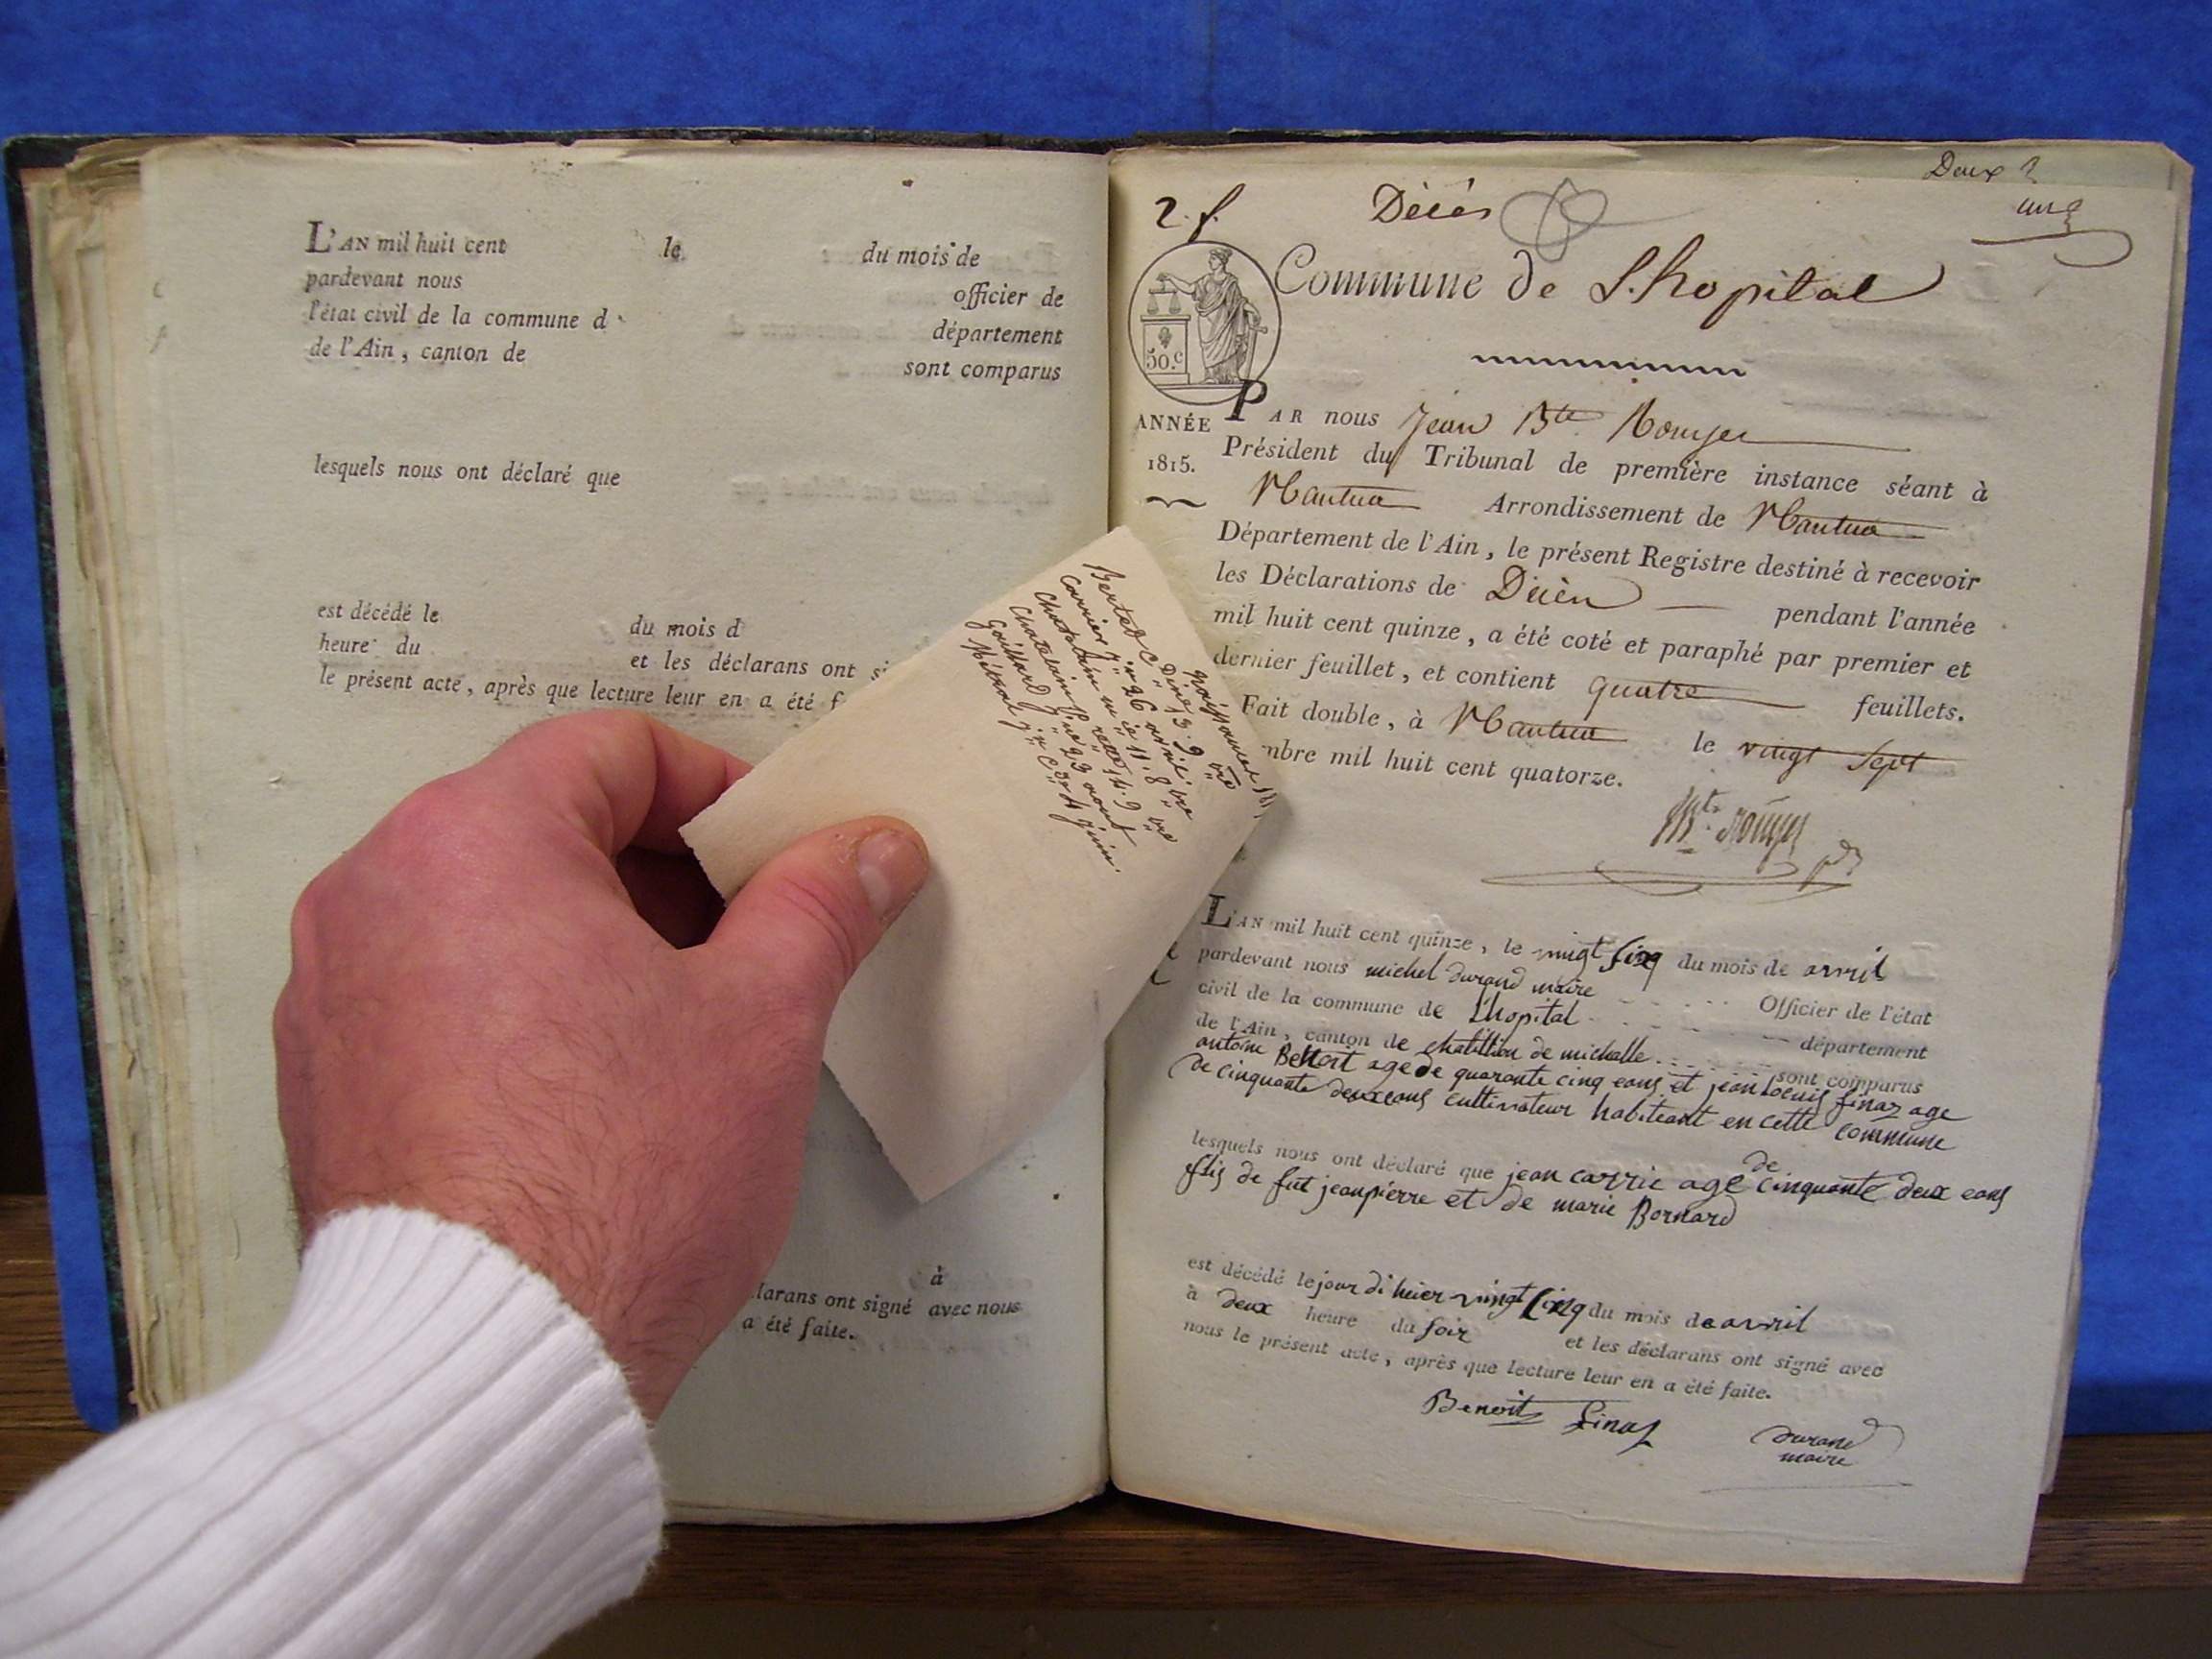 L'AN mil huit cent le du mois de
pardevant nous officier de
l'état civil de la commune d département
de l'Ain, canton de sont comparus
lesquels nous ont déclaré que
est décédé le du mois d
heure du et les déclarans ont si
le présent acte, après que lecture leur en a été f
à
larans ont signé avec nous
a été faite.
Naissances 181
Bertet C Dine 3. 9 bre
Carrier j 26 avril
Chatelain m ie 11. 8 bre
Chatelain P rette 14. 9 bre
Gaillard j 23 aout
Métral j C 4 juin.
Deux
2. f. Décès
Commune de L'hopital
50.c
ANNÉE
1815.
PAR nous Jean Bte Rouyer
Président du Tribunal de première instance séant à
Nantua Arrondissement de Nantua
Département de l'Ain, le présent Registre destiné à recevoir
les Déclarations de Décès pendant l'année
mil huit cent quinze, a été coté et paraphé par premier et
dernier feuillet, et contient quatre feuillets.
Fait double, à Nantua le vingt Sept
mbre mil huit cent quatorze.
L'AN mil huit cent quinze, le vingt sixq du mois de avril
pardevant nous michel durand maire Officier de l'état
civil de la commune de L'hopital département
de l'Ain, canton de chatillion de michalle sont comparus
antoine Benoit age de quarante cinq eans et jean Loeuis finaz age
de cinquante deuxeans cultivateur habiteant en cette commune
lesquels nous ont déclaré que jean carrie age de cinquante deux eans
flis de fut jeanpierre et de marie Bornard
est décédé le jour di hier vingt cinq du mois de avril
à deux heure du soir et les déclarans ont signé avec
nous le présent acte, après que lecture leur en a été faite.
Benoit finaz durand
maire